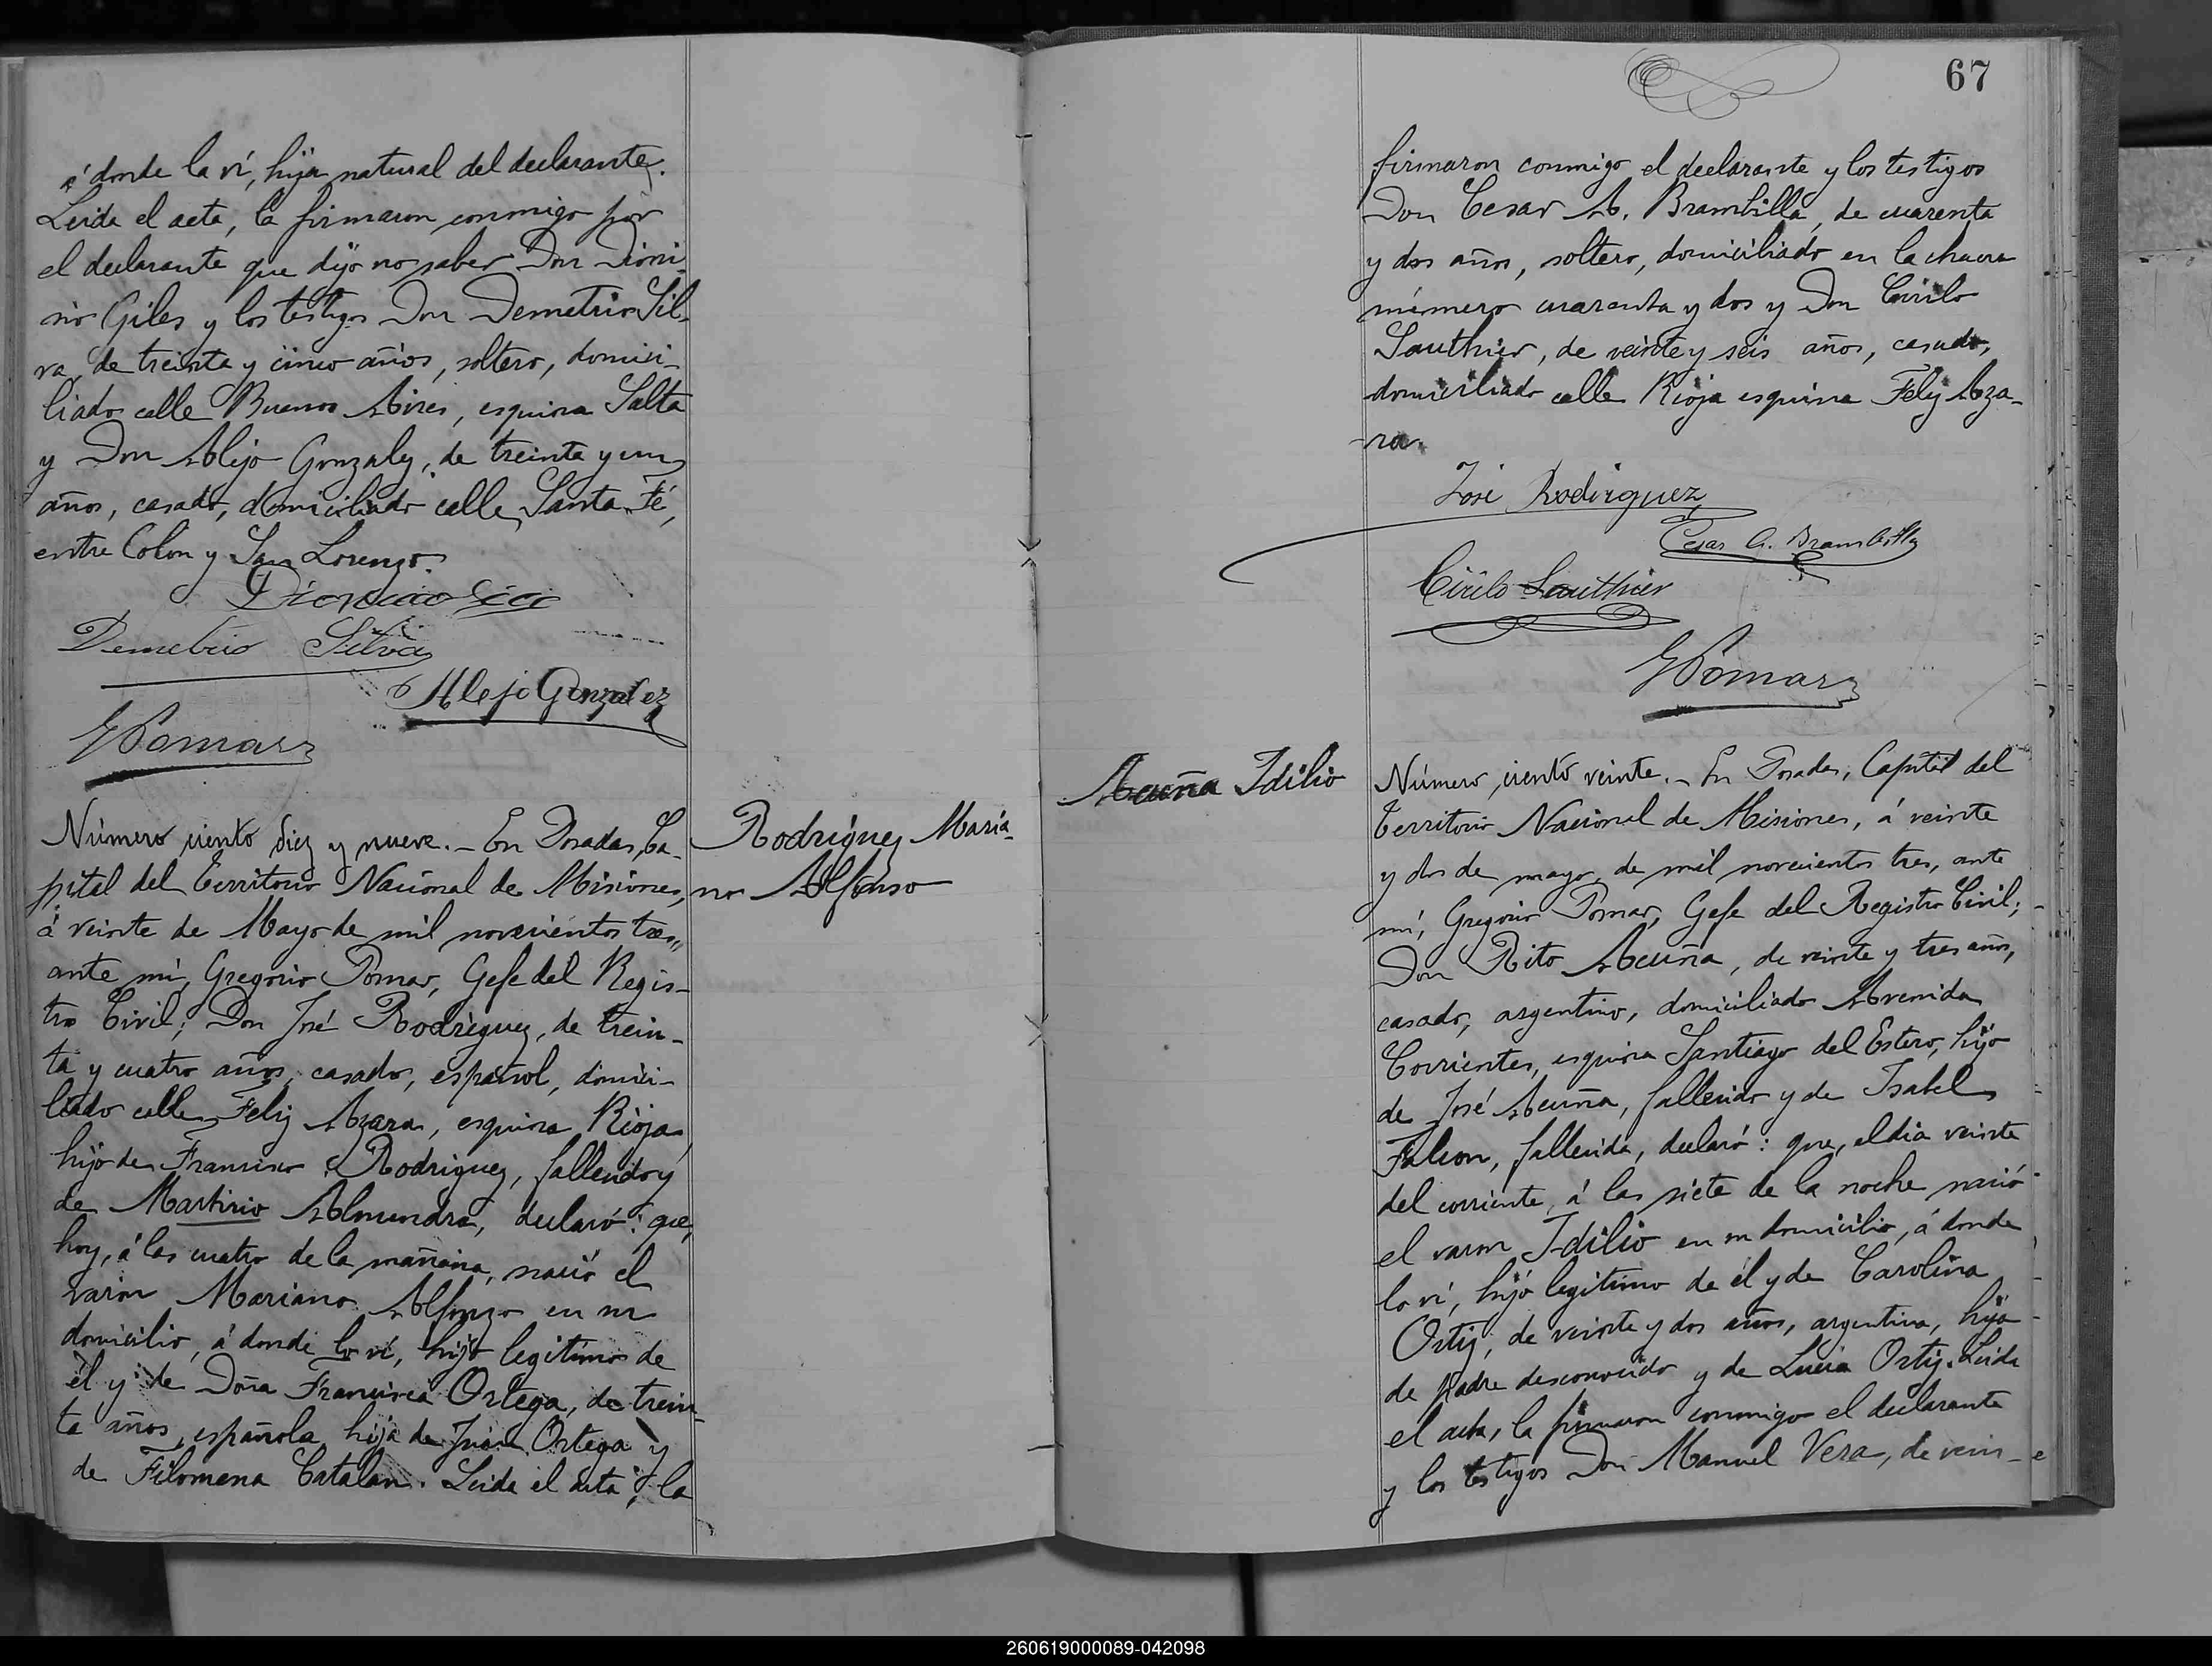 á donde la ví, hija natural del declarante.
Leida el acta, la firmaron conmigo por
el declarante que dijo no saber Don Dioni-
sio Giles y los testigos Don Demetrio Sil-
va, de treinta y cinco años, soltero, domici-
liado calle Buenos Aires, esquina Salta
y Don Alejo Gonzalez, de treinta y un
años, casado, domiciliado calle Santa Fé,
entre Colon y San Lorenzo.
Dionicio
Demetrio Silva
Alejo Gonzalez
GPomar
Número ciento diez y nueve. - En Posadas, Ca-
pital del Territorio Nacional de Misiones,
á veinte de Mayo de mil novecientos tres,
ante mí, Gregorio Pomar, Gefe del Regis-
tro Civil; Don José Rodriguez, de trein-
ta y cuatro años, casado, español, domici-
liado calle Feliz Azara, esquina Rioja,
hijo de Francisco Rodriguez, fallecido y
de Martirio Almendra, declaró: que,
hoy, á las cuatro de la mañana, nació el
varon Mariano Alfonzo en su
domicilio, á donde lo ví, hijo legitimo de
él y de Doña Francisca Ortega, de trein-
ta años, española, hija de Juan Ortega y
de Filomena Catalan. Leida el acta, la
Rodriguez Maria-
no Alfonso
67
firmaron conmigo el declarante y los testigos
Don Cesar A. Brambilla, de cuarenta
y dos años, soltero, domiciliado en la chacra
número cuarenta y dos y Don Cirilo
Sauthier, de veinte y seis años, casado,
domiciliado calle Rioja esquina Feliz Aza-
ra.
José Rodriguez
Cesar A. Brambilla
Cirilo Sauthier
GPomar
Acuña Idilio
Número ciento veinte. - En Posadas, Capital del
Territorio Nacional de Misiones, á veinte
y dos de mayo de mil novecientos tres, ante
mí, Gregorio Pomar, Gefe del Registro Civil;
Don Rito Acuña, de veinte y tres años,
casado, argentino, domiciliado Avenida
Corrientes, esquina Santiago del Estero, hijo
de José Acuña, fallecido y de Isabel
Falcon, fallecida, declaró: que, el dia veinte
del corriente, á las siete de la noche nació
el varon Idilio en su domicilio, á donde
lo ví, hijo legitimo de él y de Carolina
Ortiz, de veinte y dos años, argentina, hija
de padre desconocido y de Lucia Ortiz. Leida
el acta, la firmaron conmigo el declarante
y los testigos Don Manuel Vera, de vein-
260619000089-042098